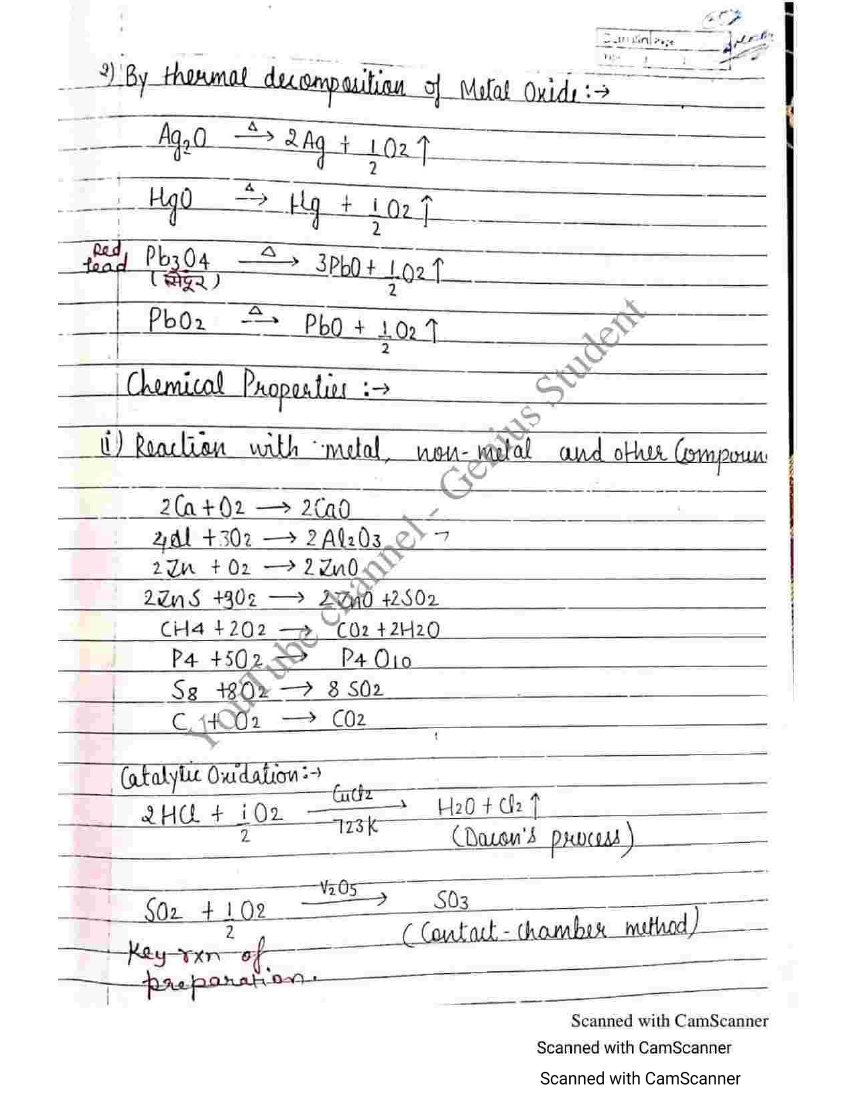 2) By thermal decomposition of Metal Oxide :→
Ag₂O —Δ→ 2Ag + 1/2 O2 ↑
HgO —Δ→ Hg + 1/2 O2 ↑
Red lead Pb3O4 —Δ→ 3PbO + 1/2 O2 ↑
(सिंदूर)
PbO2 —Δ→ PbO + 1/2 O2 ↑
Chemical Properties :→
(i) Reaction with metal, non-metal and other Compoun
2Ca + O2 → 2CaO
4Al + 3O2 → 2Al2O3
2Zn + O2 → 2ZnO
2ZnS + 3O2 → 2ZnO + 2SO2
CH4 + 2O2 → CO2 + 2H2O
P4 + 5O2 → P4O10
S8 + 8O2 → 8SO2
C + O2 → CO2
Catalytic Oxidation :→
2HCl + 1/2 O2 —CuCl2 / 723K→ H2O + Cl2 ↑
(Dacon's process)
SO2 + 1/2 O2 —V2O5→ SO3
(Contact-chamber method)
Key rxn of
preparation.
YouTube channel - Genius Student
Scanned with CamScanner
Scanned with CamScanner
Scanned with CamScanner